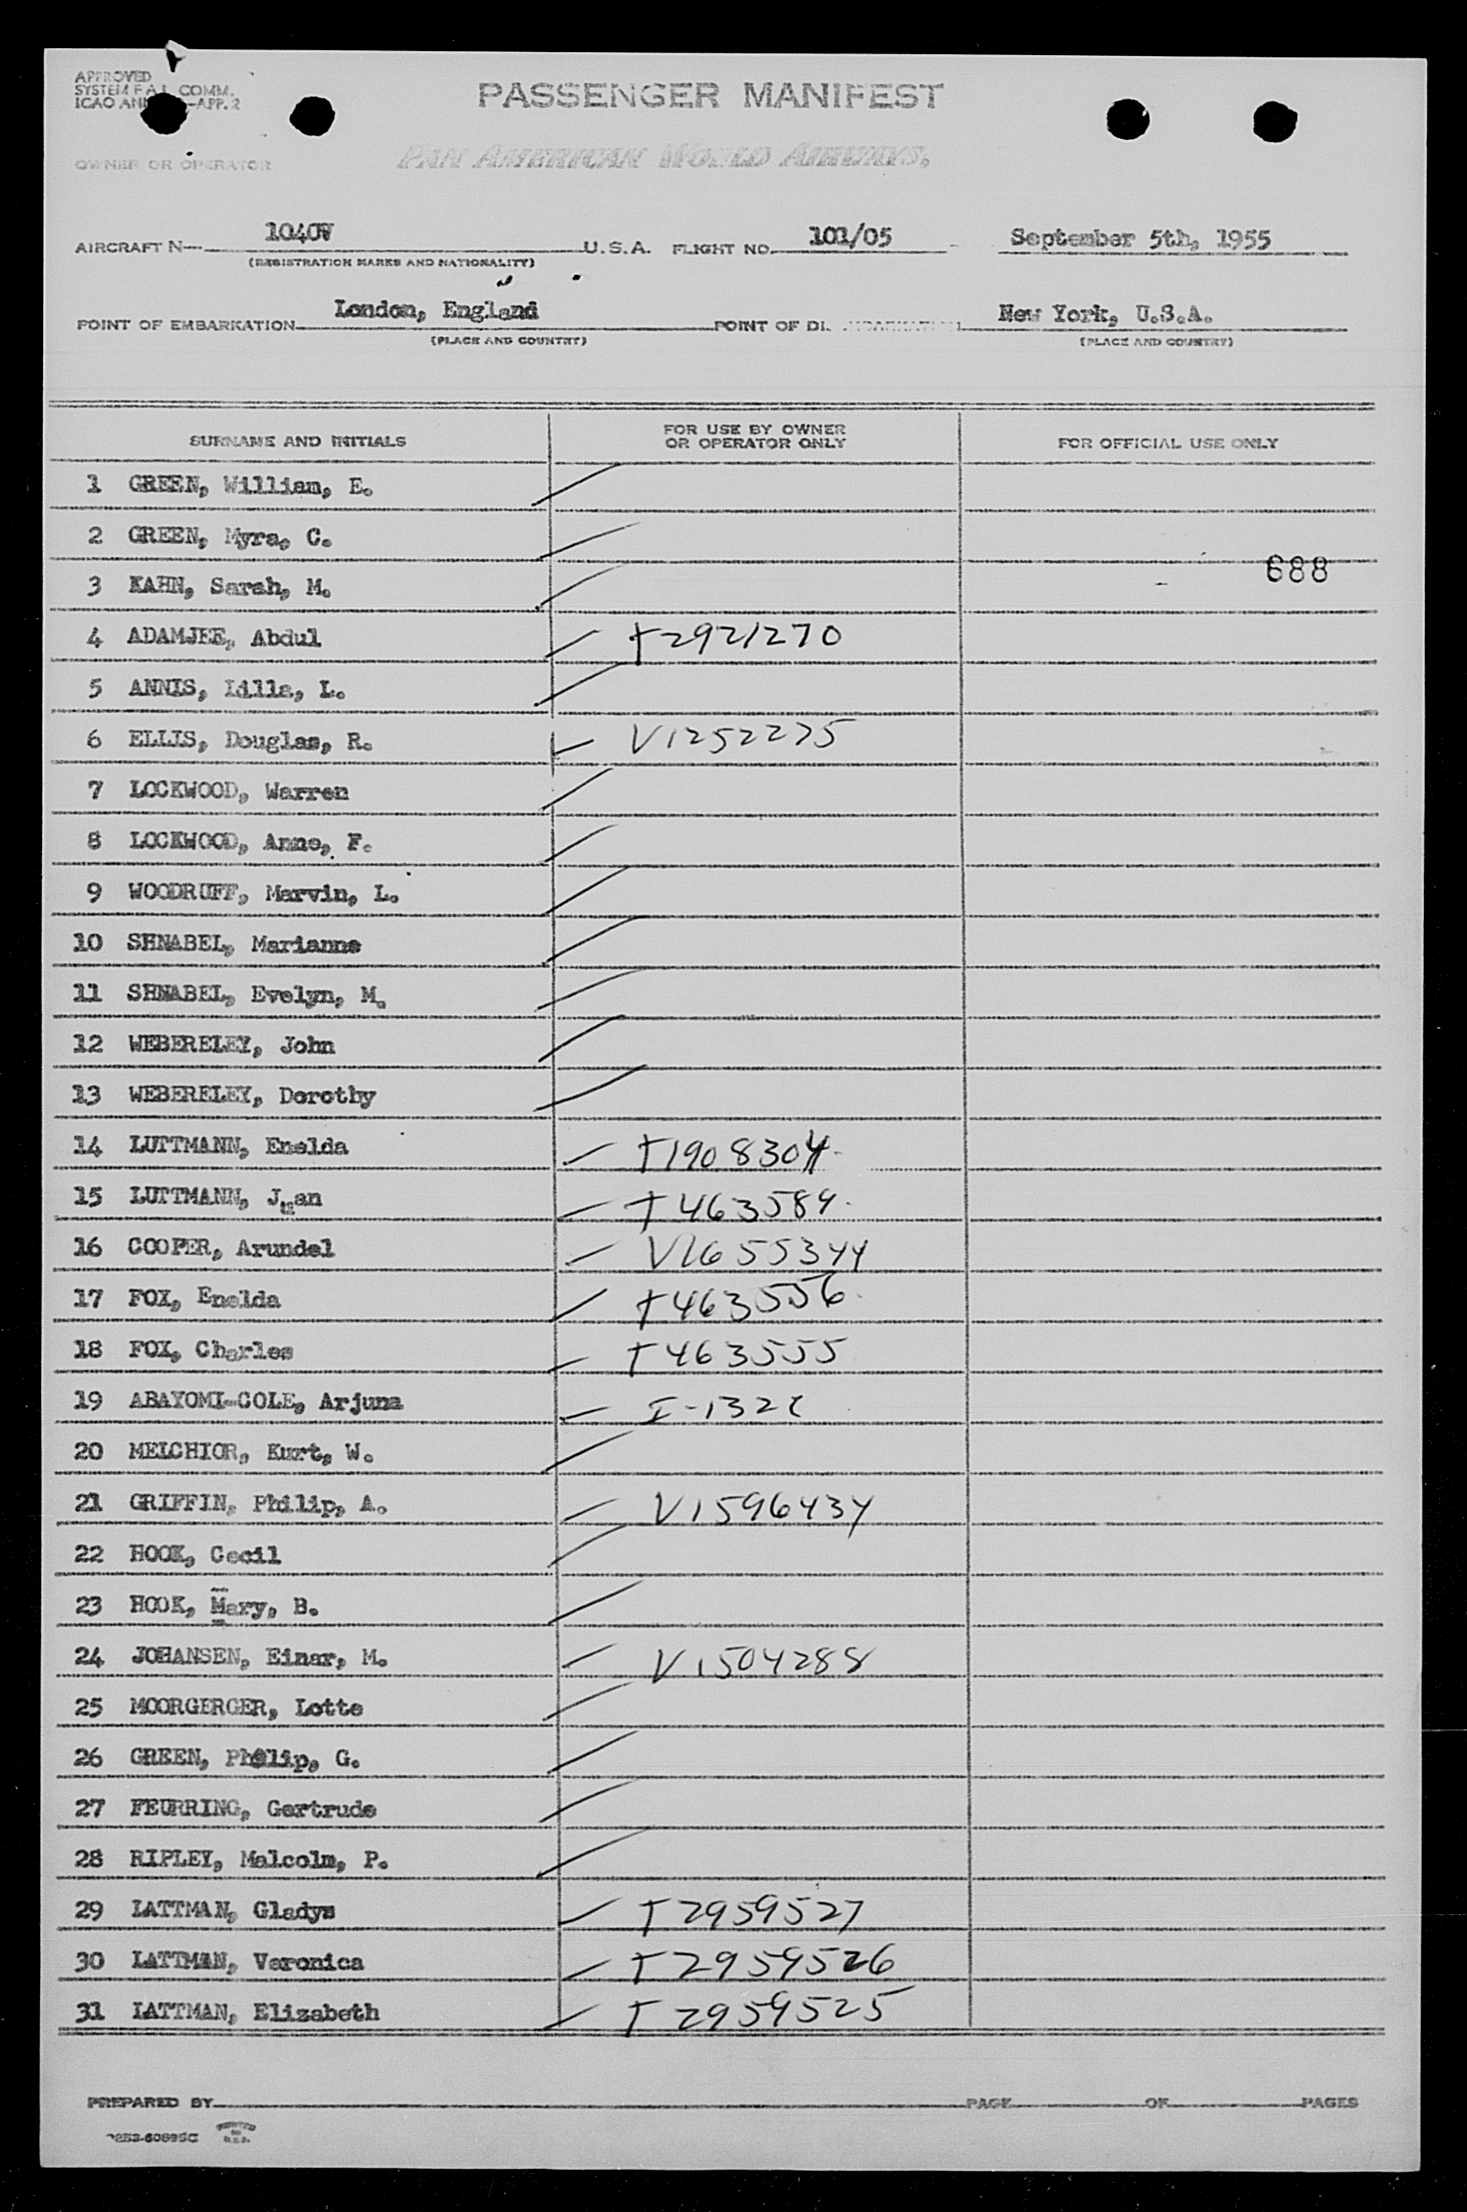 APPROVED
SYSTEM F.A.L. COMM.
ICAO -APP. 2
PASSENGER MANIFEST
OWNER OR OPERATOR
PAN AMERICAN WORLD AIRWAYS.
AIRCRAFT N— 1040V U.S.A. FLIGHT NO. 101/05 September 5th, 1955
(REGISTRATION MARKS AND NATIONALITY)
POINT OF EMBARKATION London, England POINT OF New York, U.S.A.
(PLACE AND COUNTRY) (PLACE AND COUNTRY)
SURNAME AND INITIALS FOR USE BY OWNER OR OPERATOR ONLY FOR OFFICIAL USE ONLY
1 GREEN, William, E.
2 GREEN, Myra, C.
688
3 KAHN, Sarah, M.
4 ADAMJEE, Abdul T2921270
5 ANNIS, Lilla, L.
6 ELLIS, Douglas, R. V1252275
7 LOCKWOOD, Warren
8 LOCKWOOD, Anne, F.
9 WOODRUFF, Marvin, L.
10 SHNABEL, Marianne
11 SHNABEL, Evelyn, M.
12 WEBERELEY, John
13 WEBERELEY, Dorothy
14 LUTTMANN, Enelda T1908304
15 LUTTMANN, T463589
16 COOPER, Arundel V1655344
17 FOX, Enelda T463556
18 FOX, Charles T463555
19 ABAYOMI-COLE, Arjuna I-1322
20 MELCHIOR, Kurt, W.
21 GRIFFIN, Philip, A. V1596434
22 HOOK, Cecil
23 HOOK, Mary, B.
24 JOHANSEN, Einar, M. V1504288
25 MOORGERGER, Lotte
26 GREEN, Philip, G.
27 FEURRING, Gertrude
28 RIPLEY, Malcolm, P.
29 LATTMAN, Gladys T2959527
30 LATTMAN, Veronica T2959526
31 LATTMAN, Elizabeth T2959525
PREPARED BY PAGE OF PAGES
PRINTED IN U.S.A.